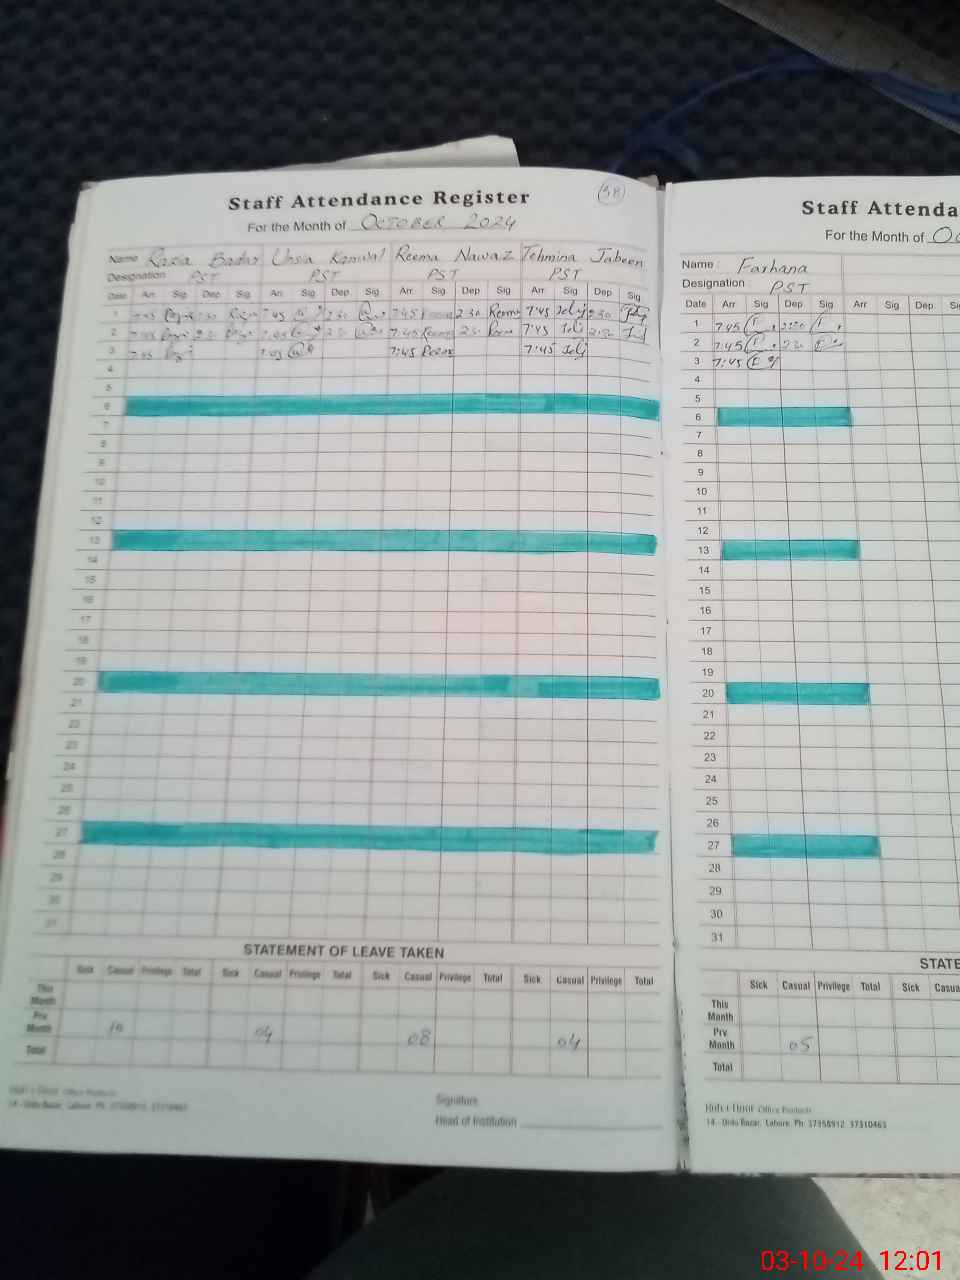 Staff Attendance Register
38
For the Month of OCTOBER 2024
Name Razia Badar Unsia Kanwal Reema Nawaz Tehmina Jabeen
Designation PST PST PST PST
Date Arr Sig Dep Sig Arr Sig Dep Sig Arr Sig Dep Sig Arr Sig Dep Sig
1 7:45 2:30 7:45 2:30 7:45 Reema 2:30 Reema 7:45 2:30
2 7:45 2:30 7:45 2:30 7:45 Reema 2:30 Reema 7:45 2:30
3 7:45 7:45 7:45 Reema 7:45
4
5
6
7
8
9
10
11
12
13
14
15
16
17
18
19
20
21
22
23
24
25
26
27
28
29
30
31
STATEMENT OF LEAVE TAKEN
Sick Casual Privilege Total Sick Casual Privilege Total Sick Casual Privilege Total Sick Casual Privilege Total
This Month
Prv Month 10 04 08 04
Total
Signature
Head of Institution
Office Products
14 - Urdu Bazar, Lahore. Ph: 37358912 37310463
Staff Attenda
For the Month of Oc
Name : Farhana
Designation PST
Date Arr Sig Dep Sig Arr Sig Dep Si
1 7:45 2:30
2 7:45 2:30
3 7:45
4
5
6
7
8
9
10
11
12
13
14
15
16
17
18
19
20
21
22
23
24
25
26
27
28
29
30
31
STATE
Sick Casual Privilege Total Sick Casua
This Month
Prv Month 05
Total
Office Products
14 - Urdu Bazar, Lahore. Ph: 37358912 37310463
03-10-24 12:01